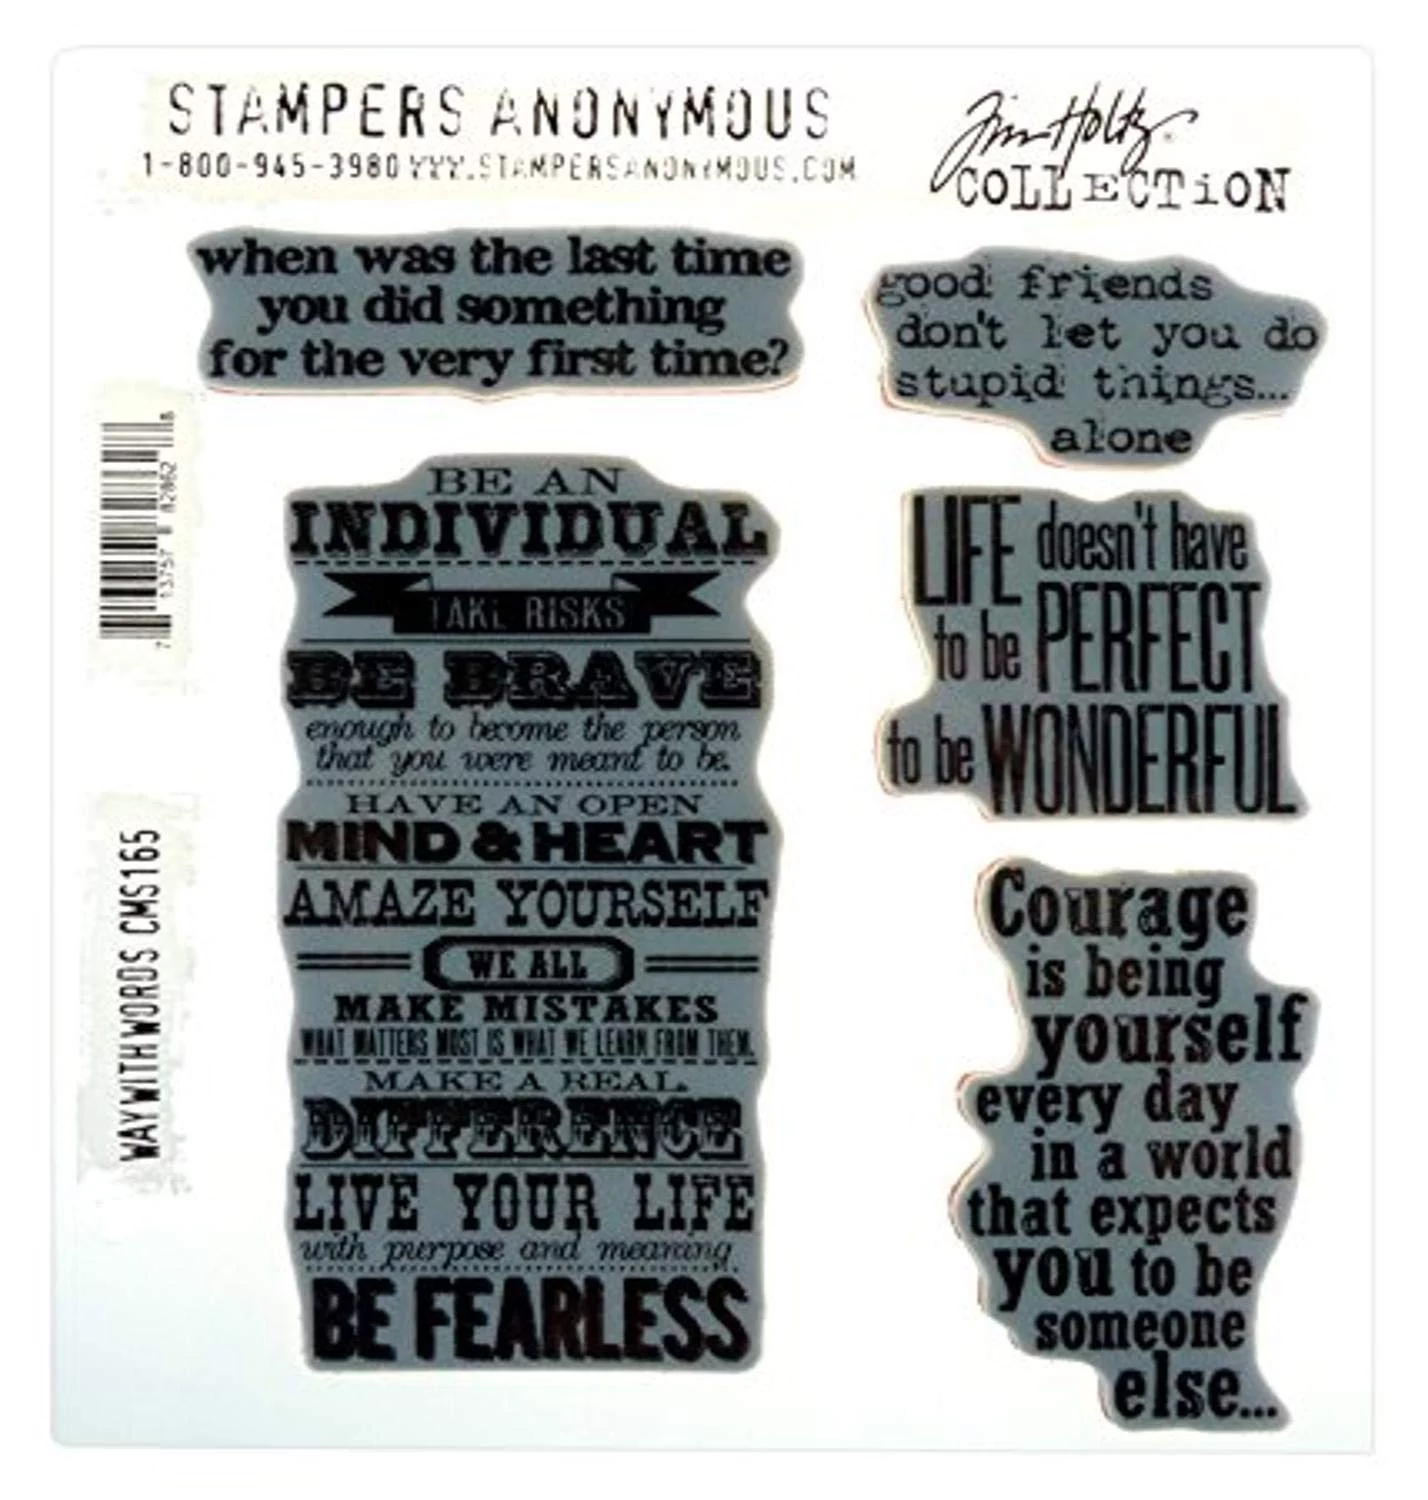 STAMPERS ANONYMOUS
1-800-945-3980 WWW.STAMPERSANONYMOUS.COM
Tim Holtz
COLLECTiON
when was the last time
you did something
for the very first time?
good friends
don't let you do
stupid things...
alone
BE AN
INDIVIDUAL
TAKE RISKS
BE BRAVE
enough to become the person
that you were meant to be.
HAVE AN OPEN
MIND & HEART
AMAZE YOURSELF
WE ALL
MAKE MISTAKES
WHAT MATTERS MOST IS WHAT WE LEARN FROM THEM.
MAKE A REAL
DIFFERENCE
LIVE YOUR LIFE
with purpose and meaning
BE FEARLESS
LIFE doesn't have
to be PERFECT
to be WONDERFUL
Courage
is being
yourself
every day
in a world
that expects
you to be
someone
else...
7 13757 8 82862 8
WAY WITH WORDS CMS165